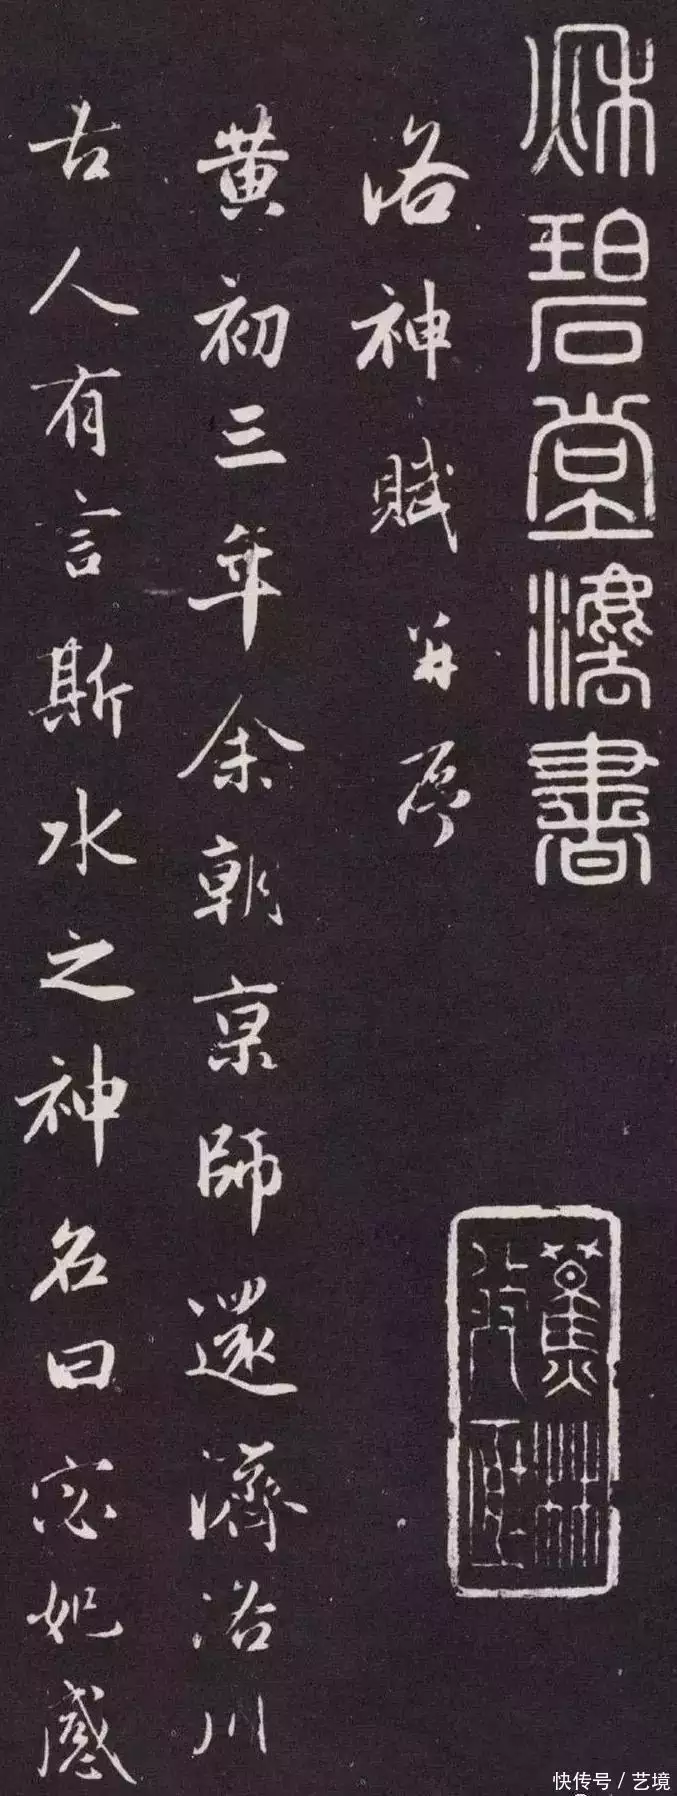 秋碧堂法書
蕉林
洛神賦并序
黄初三年余朝京師還濟洛川
古人有言斯水之神名曰宓妃感
快传号 / 艺境